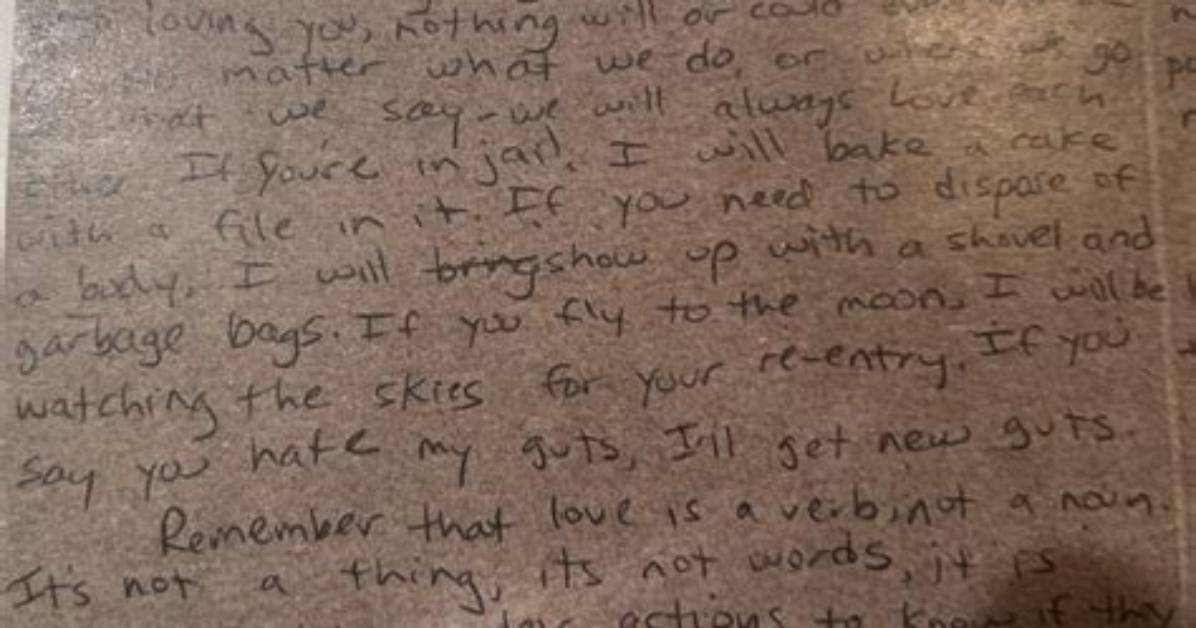 loving you, nothing will or could
matter what we do, or where we go
what we say - we will always love each
other If you're in jail, I will bake a cake
with a file in it. If you need to dispose of
a body, I will bring show up with a shovel and
garbage bags. If you fly to the moon, I will be
watching the skies for your re-entry. If you
say you hate my guts, I'll get new guts.
Remember that love is a verb, not a noun.
It's not a thing, its not words, it is
actions to know if they